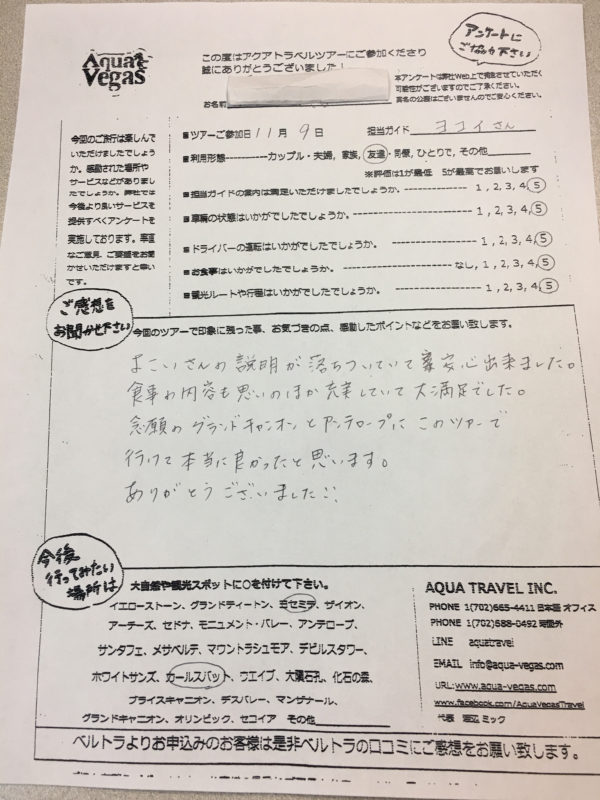 アンケートに
ご協力下さい
Aqua
Vegas
この度はアクアトラベルツアーにご参加くださり
誠にありがとうございました！
本アンケートは弊社Web上で掲載させていただく
可能性がございますのでご了承ください。
実名の公開はございませんのでご安心ください。
お名前
今回のご旅行は楽しんで
いただけましたでしょう
か。感動された場所や
サービスなどがありまし
たでしょうか。弊社では
今後より良いサービスを
提供すべくアンケートを
実施しております。率直
なご意見、ご要望をお聞
かせいただけますと幸い
です。
■ツアーご参加日 11月 9日 担当ガイド ヨコイさん
■利用形態-----------カップル・夫婦, 家族, 友達・同僚, ひとりで, その他
※評価は1が最低 5が最高でお願いします
■担当ガイドの案内は満足いただけましたでしょうか。 ---------------- 1, 2, 3, 4, 5
■車輛の状態はいかがでしたでしょうか。 ---------------- 1, 2, 3, 4, 5
■ドライバーの運転はいかがでしたでしょうか。 ---------------- 1, 2, 3, 4, 5
■お食事はいかがでしたでしょうか。 ---------------- なし, 1, 2, 3, 4, 5
■観光ルートや行程はいかがでしたでしょうか。 ---------------- 1, 2, 3, 4, 5
ご感想を
お聞かせ下さい
今回のツアーで印象に残った事、お気づきの点、感動したポイントなどをお願い致します。
よこいさんの説明が落ちついていて安心出来ました。
食事の内容も思いのほか充実していて大満足でした。
念願のグランドキャニオンとアンテロープにこのツアーで
行けて本当に良かったと思います。
ありがとうございました
今後
行ってみたい
場所は
大自然や観光スポットに○を付けて下さい。
イエローストーン、グランドティートン、ヨセミテ、ザイオン、
アーチーズ、セドナ、モニュメント・バレー、アンテロープ、
サンタフェ、メサベルデ、マウントラシュモア、デビルスタワー、
ホワイトサンズ、カールスバット、ウエイブ、大隕石孔、化石の森、
ブライスキャニオン、デスバレー、マンザナール、
グランドキャニオン、オリンピック、セコイア その他
AQUA TRAVEL INC.
PHONE 1(702)665-4411 日本語 オフィス
PHONE 1(702)688-0492 時間外
LINE aquatravel
EMAIL info@aqua-vegas.com
URL:www.aqua-vegas.com
www.facebook.com/AquaVegasTravel
代表 渡辺 ミック
ベルトラよりお申込みのお客様は是非ベルトラの口コミにご感想をお願い致します。